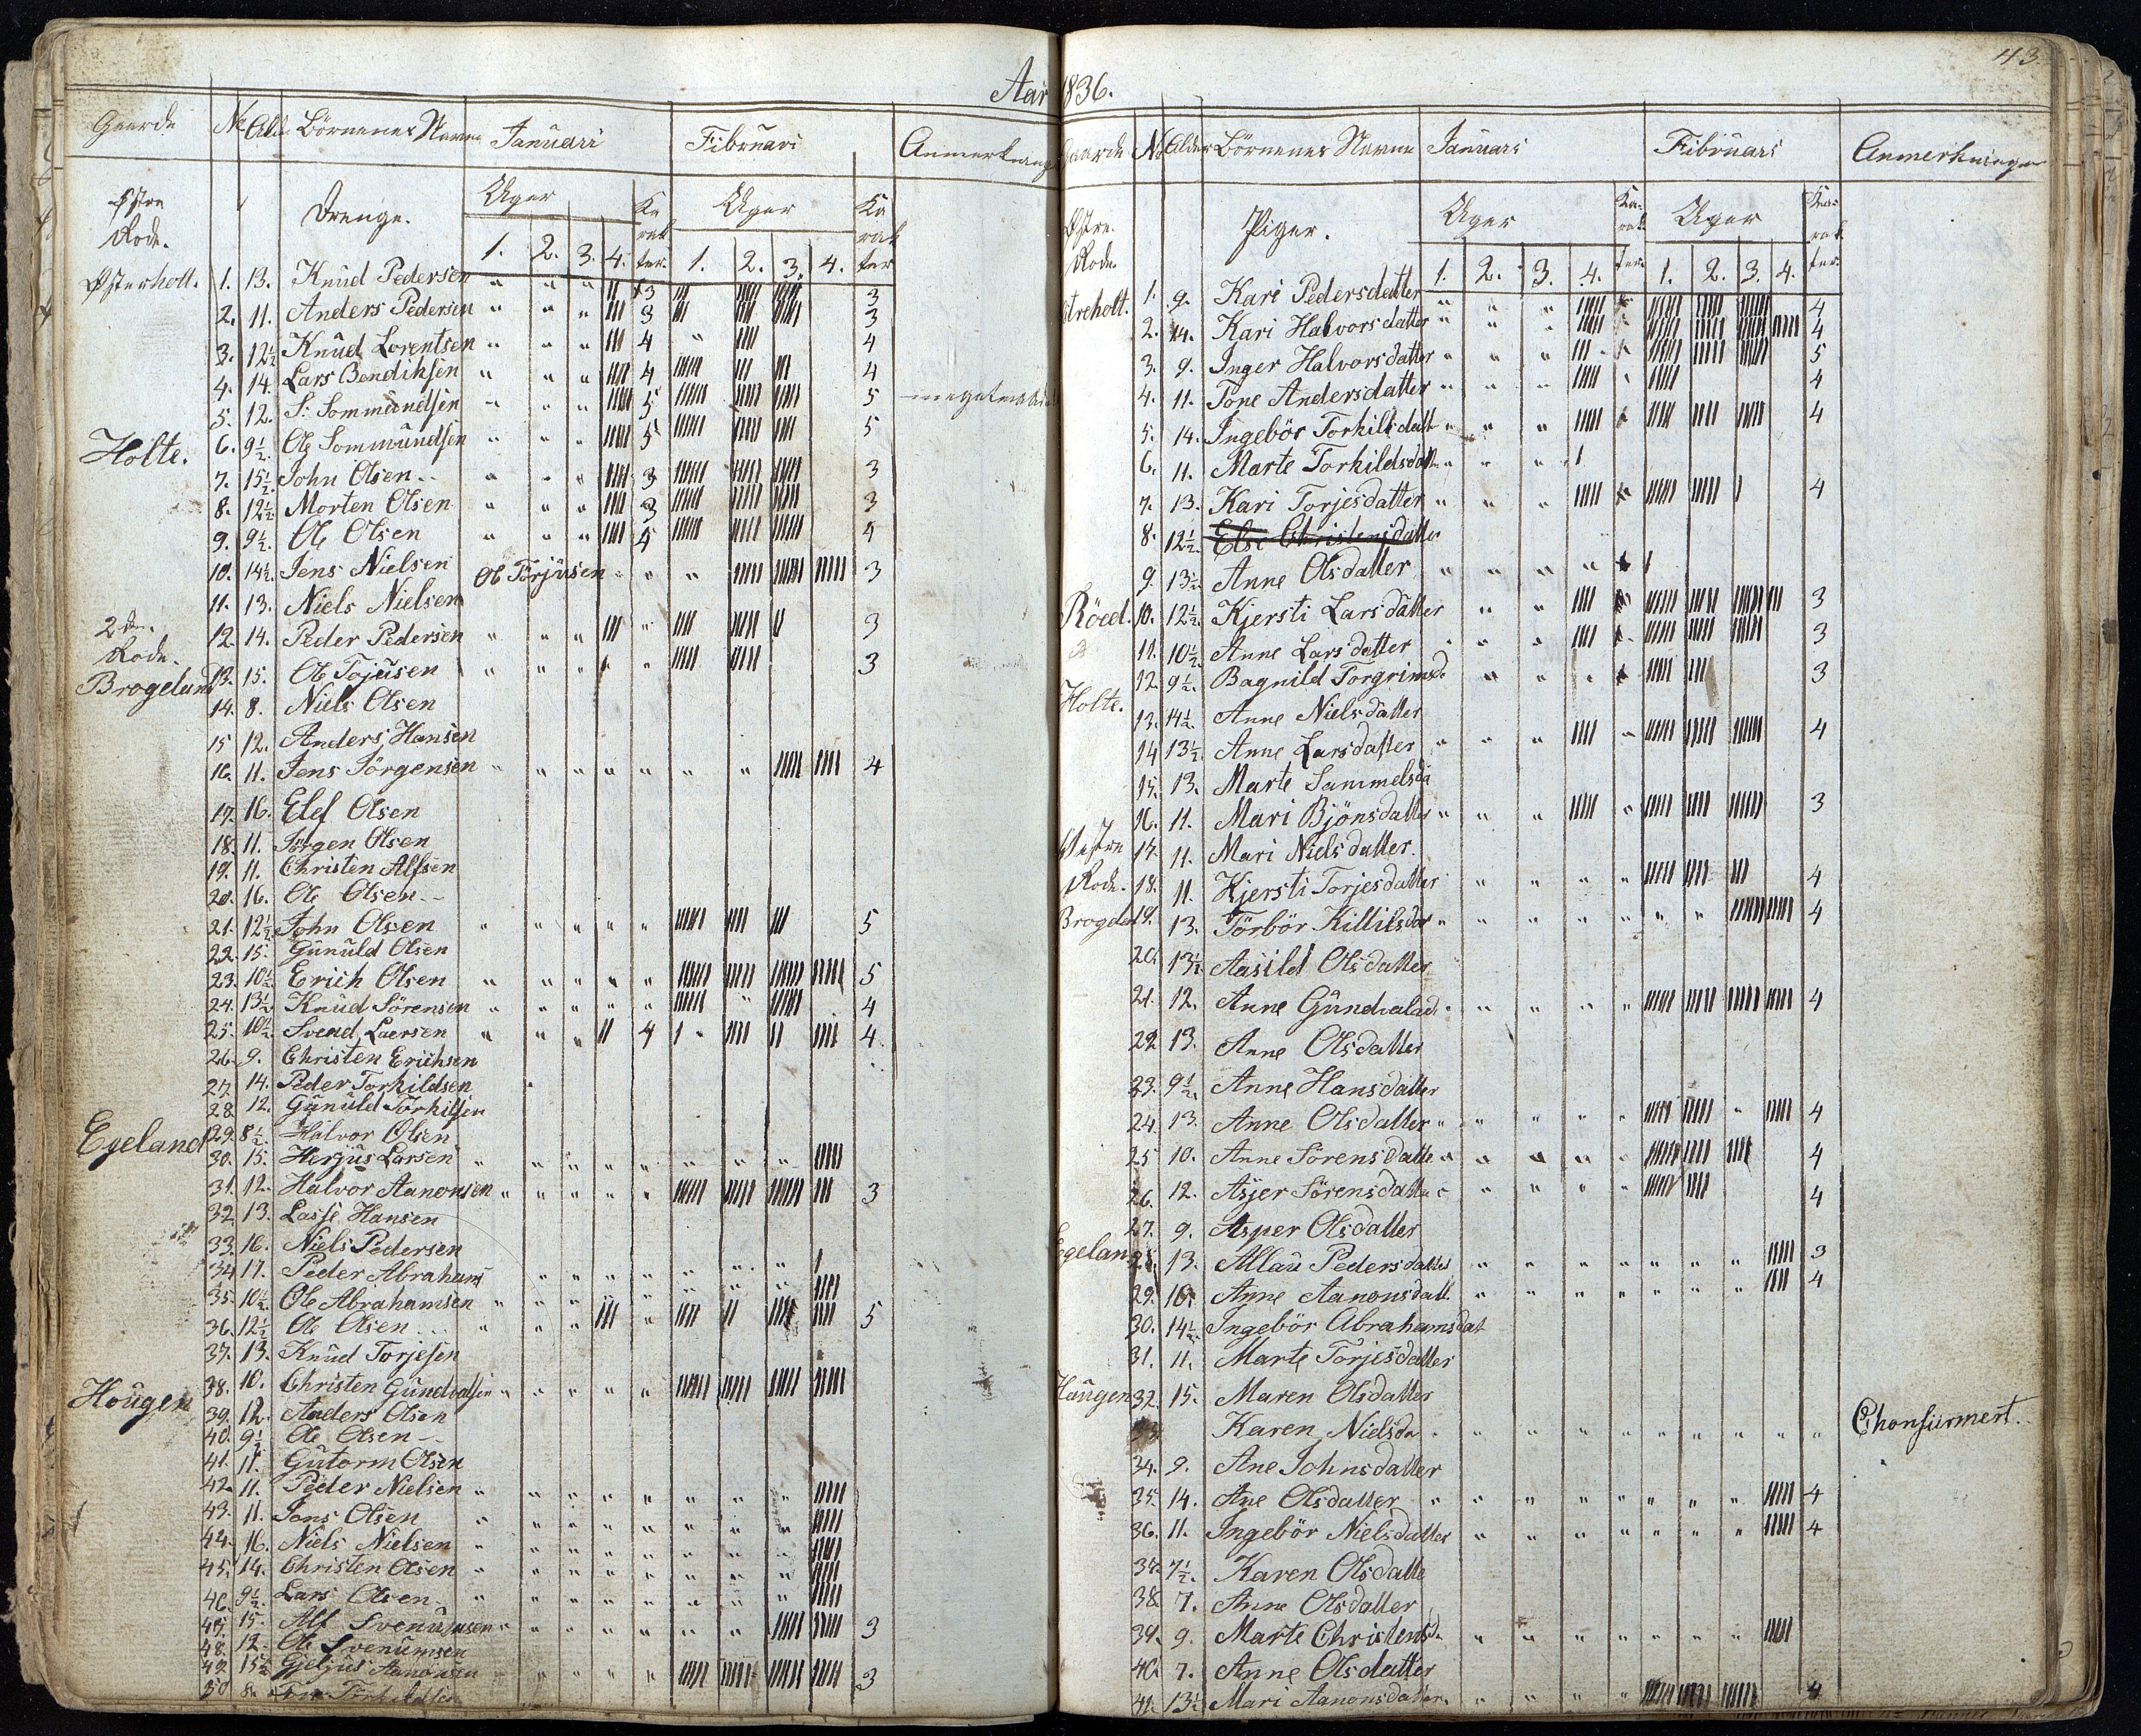 43
Aar 1836.
Gaarde No Alder Börnenes Navne Januari Fibruari Anmerkning
Østre Rode. Drenge. Uger Karakter. Uger Karakter
1. 2. 3. 4. 1. 2. 3. 4.
Østerholt. 1. 13. Knud Pedersen " " " 3 3
2. 11. Anders Pedersen " " " 3 3
3. 12½ Knud Lorentsen " " " 4 " 4
4. 14. Lars Bendiksen " " " 4 4
5. 12. S: Sommundsen " " " 5 5
Holte. 6. 9½. Ole Sommundsen " " " 5 5
7. 15½ John Olsen " " " 3 3
8. 12½ Morten Olsen " " " 3 3
9. 9½. Ole Olsen " " " 4 4
10. 14½. Jens Nielsen Ole Torjusen " " " 3
11. 13. Niels Nielsen
2den Rode. 12. 14. Peder Pedersen " " " " 3
Brogeland 13. 15. Ole Tojusen " " " " 3
14. 8. Niels Olsen
15 12. Anders Hansen
16. 11. Jens Jörgensen " " " " " " " 4
17. 16. Elef Olsen
18. 11. Jörgen Olsen
19. 11. Christen Alfsen
20. 16. Ole Olsen
21. 12½ John Olsen " " " " " 5
22. 15. Gunuld Olsen
23. 10½ Erich Olsen " " " " " 5
24. 13½ Knud Sörensen " " " " " " 4
25. 10½ Svend Laersen " " " 4 4
26. 9. Christen Erichsen
27 14. Peder Torkildsen
28 12. Gunuld Torkilsen
Egeland 29. 8½. Halvor Olsen
30. 15. Herjus Larsen " " " " " " " "
31. 12. Halvor Aanonsen " " " " " 3
32 13. Lasse Hansen
33. 16. Niels Pedersen
34 17. Peder Abrahams " " " " " " "
35. 10½. Ole Abrahamsen " " " " " " " "
36. 12½ Ole Olsen " " " " 5
37. 13. Knud Torjesen
Hougen 38. 10. Christen Gundvalsen " " " " "
39. 12. Anders Olsen
40. 9½ Ole Olsen
41. 11. Gutorm Olsen
42. 11. Peder Nielsen " " " " " " " "
43. 11. Jens Olsen " " " " " " " "
44. 16. Niels Nielsen " " " " " " " "
45. 14. Christen Olsen " " " " " " " "
46. 9½ Lars Olsen " " " " " " " "
47. 15. Alf Svenumsen " " " " " " " 3
48. 12. Ole Svenumsen
49. 15½ Gjeljus Aanonsen " " " " 3
50 8.
Gaarde No Alder Börnenes Navne Januari Fibruari Anmerkninger
Østre Rode Piger. Uger Karakter. Uger Karakter.
1. 2. 3. 4. 1. 2. 3. 4.
streholt. 1. 9. Kari Pedersdatter " " " 4
2. 14. Kari Halvorsdatter " " " 4
3. 9. Inger Halvorsdatter " " " 5
4. 11. Tone Andersdatter " " " 4
5. 14. Ingebör Torkildsdatt " " " 4
6. 11. Marte Torkildsdatt " " "
7. 13. Kari Torjesdatter " " " 4
8. 12½. Else Christensdatter
9. 13½ Anne Olsdatter " " " "
Röed. 10. 12½. Kjersti Larsdatter " " 3
11. 10½ Anne Larsdatter " " " 3
12. 9½. Bagnild Torgrimsd. " " " 3
Holte. 13. 14½. Anne Nielsdatter
14 13½. Anne Larsdatter " " " " 4
15. 13. Marte Sammelsda
16. 11. Mari Bjönsdatter " " " " 3
Westre 17. 11. Mari Nielsdatter.
Rode. 18. 11. Kjersti Torjesdatter " " " " 4
Brogeland 19. 13. Törbör Killilsdar " " " " " " " 4
20. 13½ Aasild Olsdatter
21. 12. Anne Gundvalsd. " " " " " 4
22 13. Anne Olsdatter
23. 9½. Anne Hansdatter
24. 13. Anne Olsdatter " " " " " " 4
25 10. Anne Sörensdatte " " " " " 4
26. 12. Asjer Sörensdatter " " " " 4
27. 9. Asper Olsdatter
Egeland 28. 13. Allau Pedersdatter " " " " " " " 3
29. 10. Anne Aanonsdatt. " " " " " " " " 4
30. 14½. Ingebör Abrahamsdat
31. 11. Marte Torjesdatter
Haugen 32. 15. Maren Olsdatter
33 Karen Nielsda " " " " " " " " " " Chonfirmert.
34. 9. Ane Johnsdatter
35. 14. Ane Olsdatter " " " " " " " " 4
36. 11. Ingebör Nielsdatter " " " " " " " " 4
37. 7½. Karen Olsdatte
38 7. Anne Olsdatter
39. 9. Marte Christensda " " " " " " " "
40. 7. Anne Olsdatter
41. 13½ Mari Aanonsdatter. " " " " 4